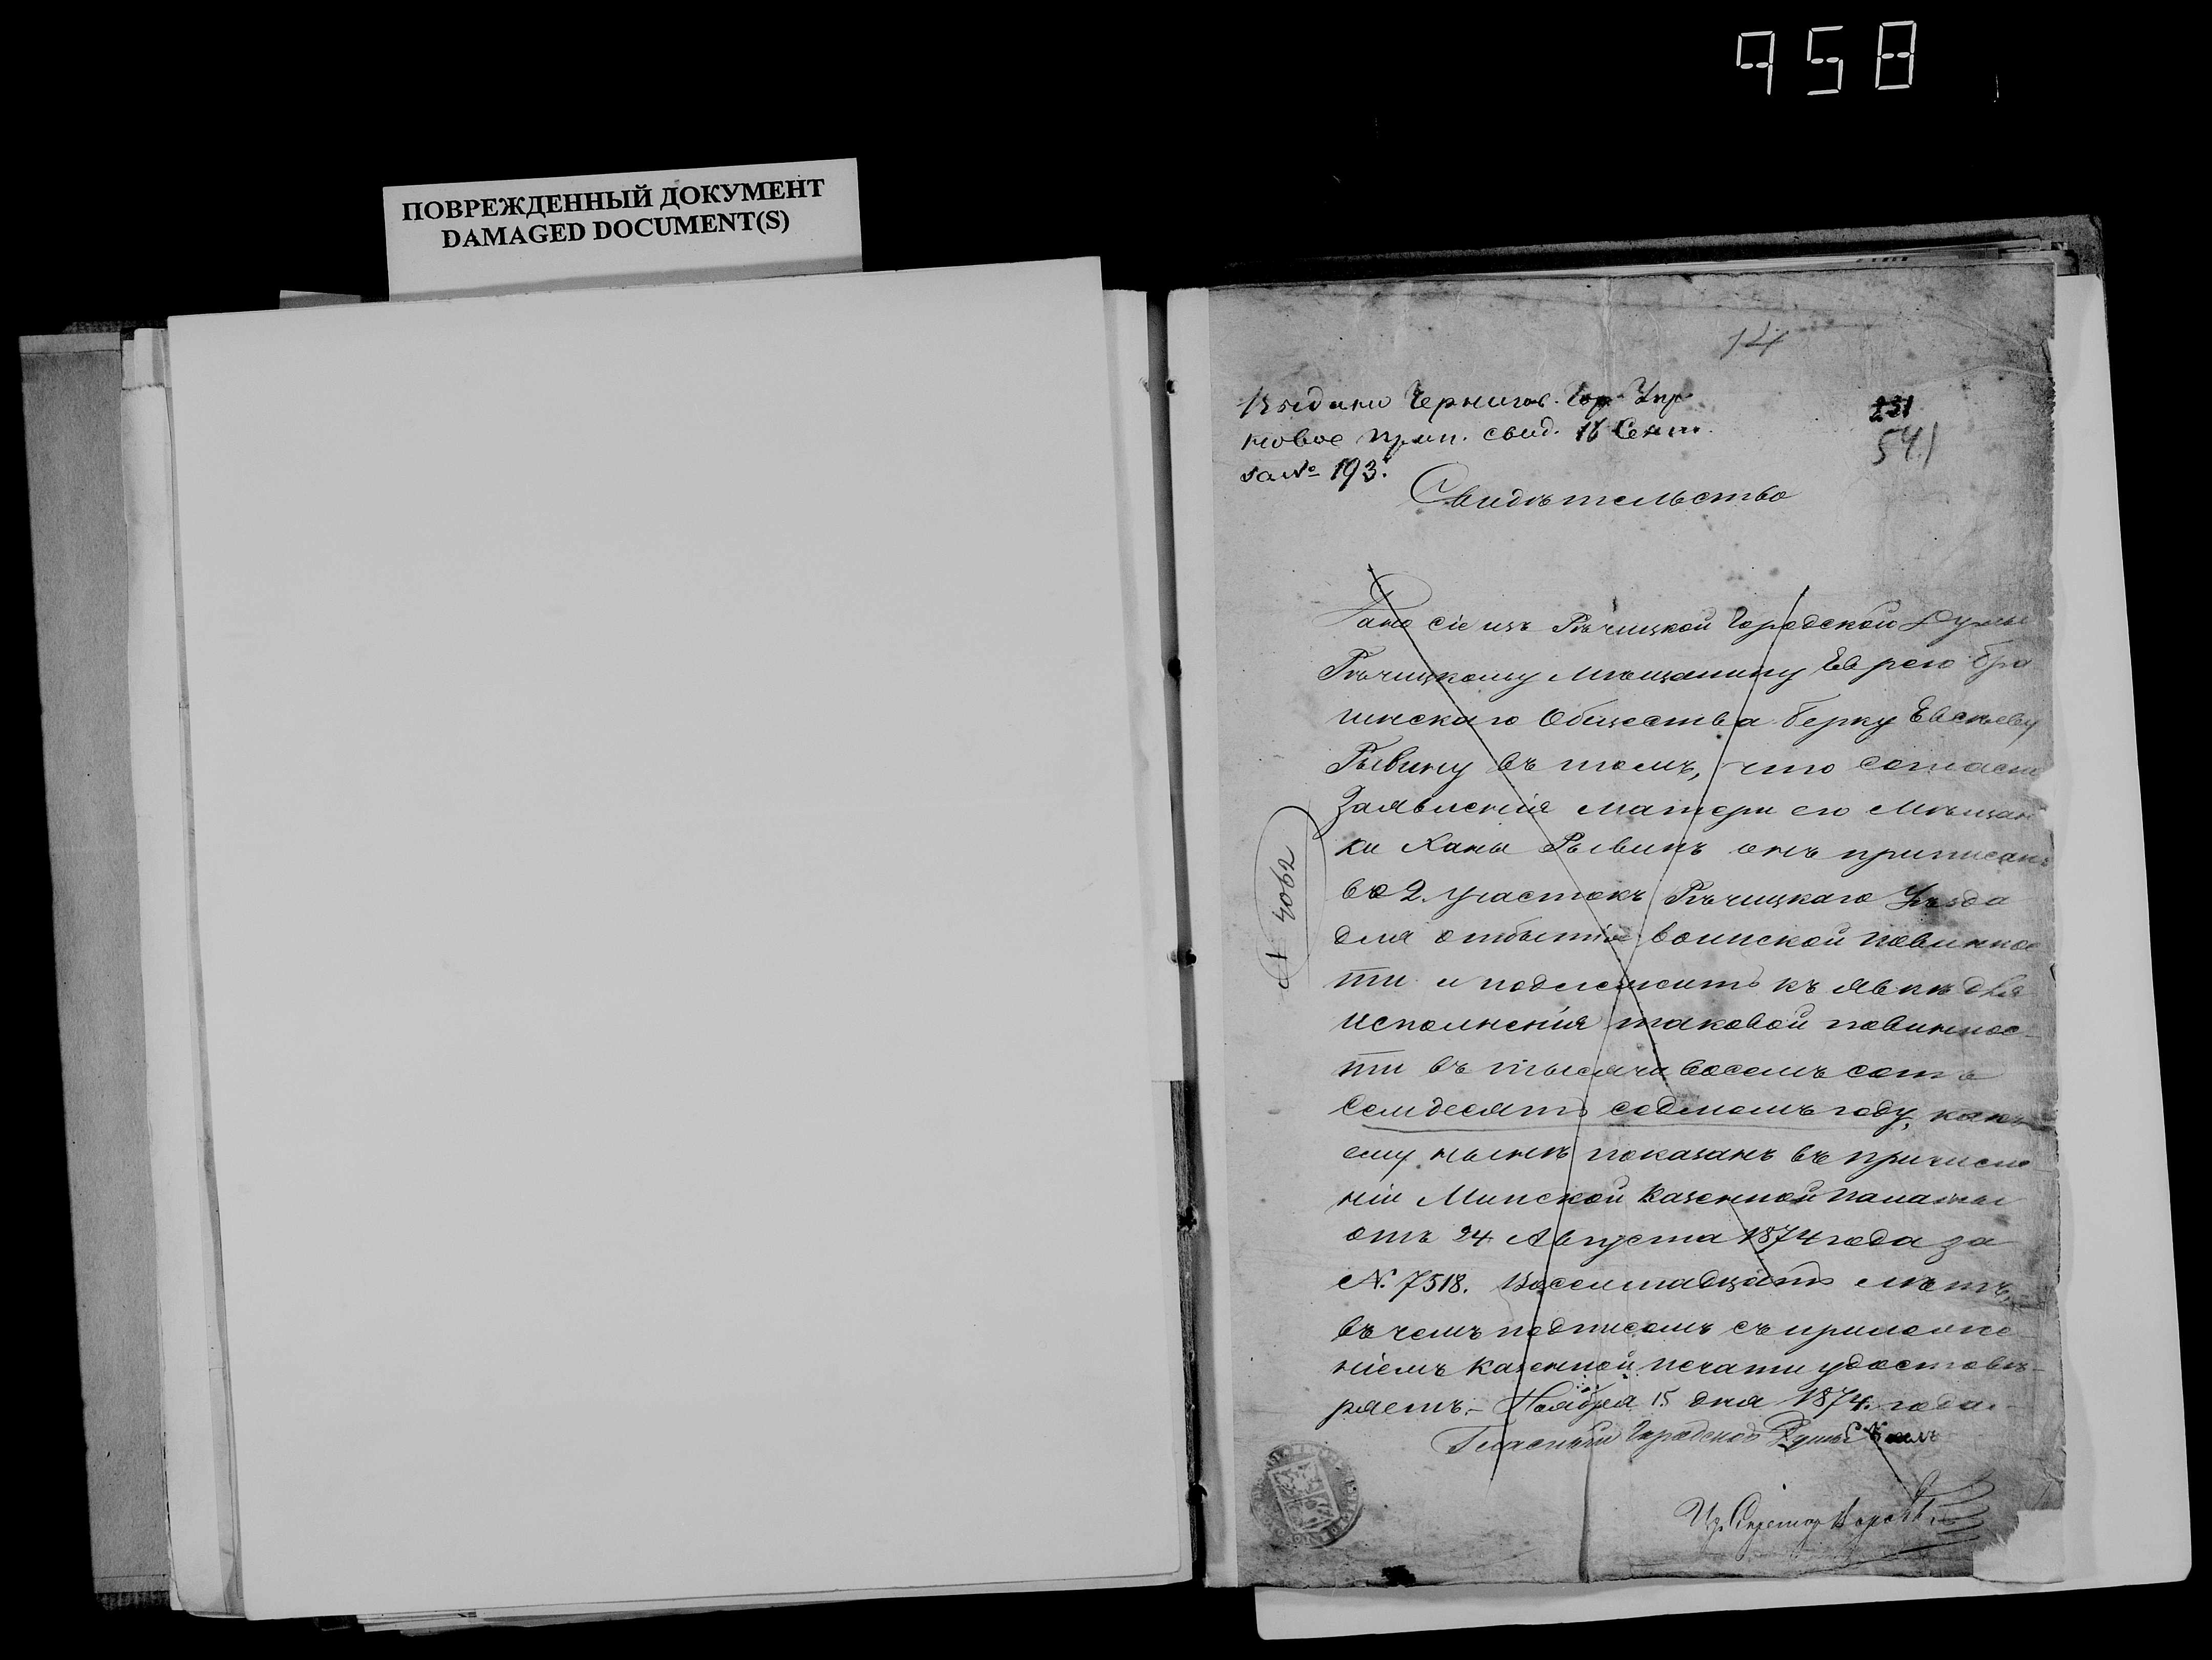 958
ПОВРЕЖДЕННЫЙ ДОКУМЕНТ
DAMAGED DOCUMENT(S)
14
Выдано Чернигов. Гор. Упр
новое прип. свид. 16 Сент.
за № 193.
231
541
Свидѣтельство
Дано сіе изъ Рѣчицкой Городской Думы
Рѣчицкому Мѣщанину Еврею Бра
гинскаго Общества Берку Евсѣеву
Рывину въ томъ, что согласно
Заявленія матери его Мѣщан
ки Ханы Рывинъ онъ приписанъ
во 2. участокъ Рѣчицкаго Уѣзда
для отбытія воинской повиннос
ти и подлежитъ къ явкѣ для
исполненія таковой повиннос-
ти въ тысяча восемь сотъ
Семдесятъ седмомъ году, какъ
ему нынѣ показанъ въ причисле-
ніи Минской Казенной палаты
отъ 24 Августа 1874 года за
№. 7518. Восемнадцать лѣтъ,
въ чемъ подписомъ съ приложе-
ніемъ казенной печати удостовѣ-
ряетъ.- Ноября 15 дня 1874. года.-
Гласный Городской Думы
№ 4062